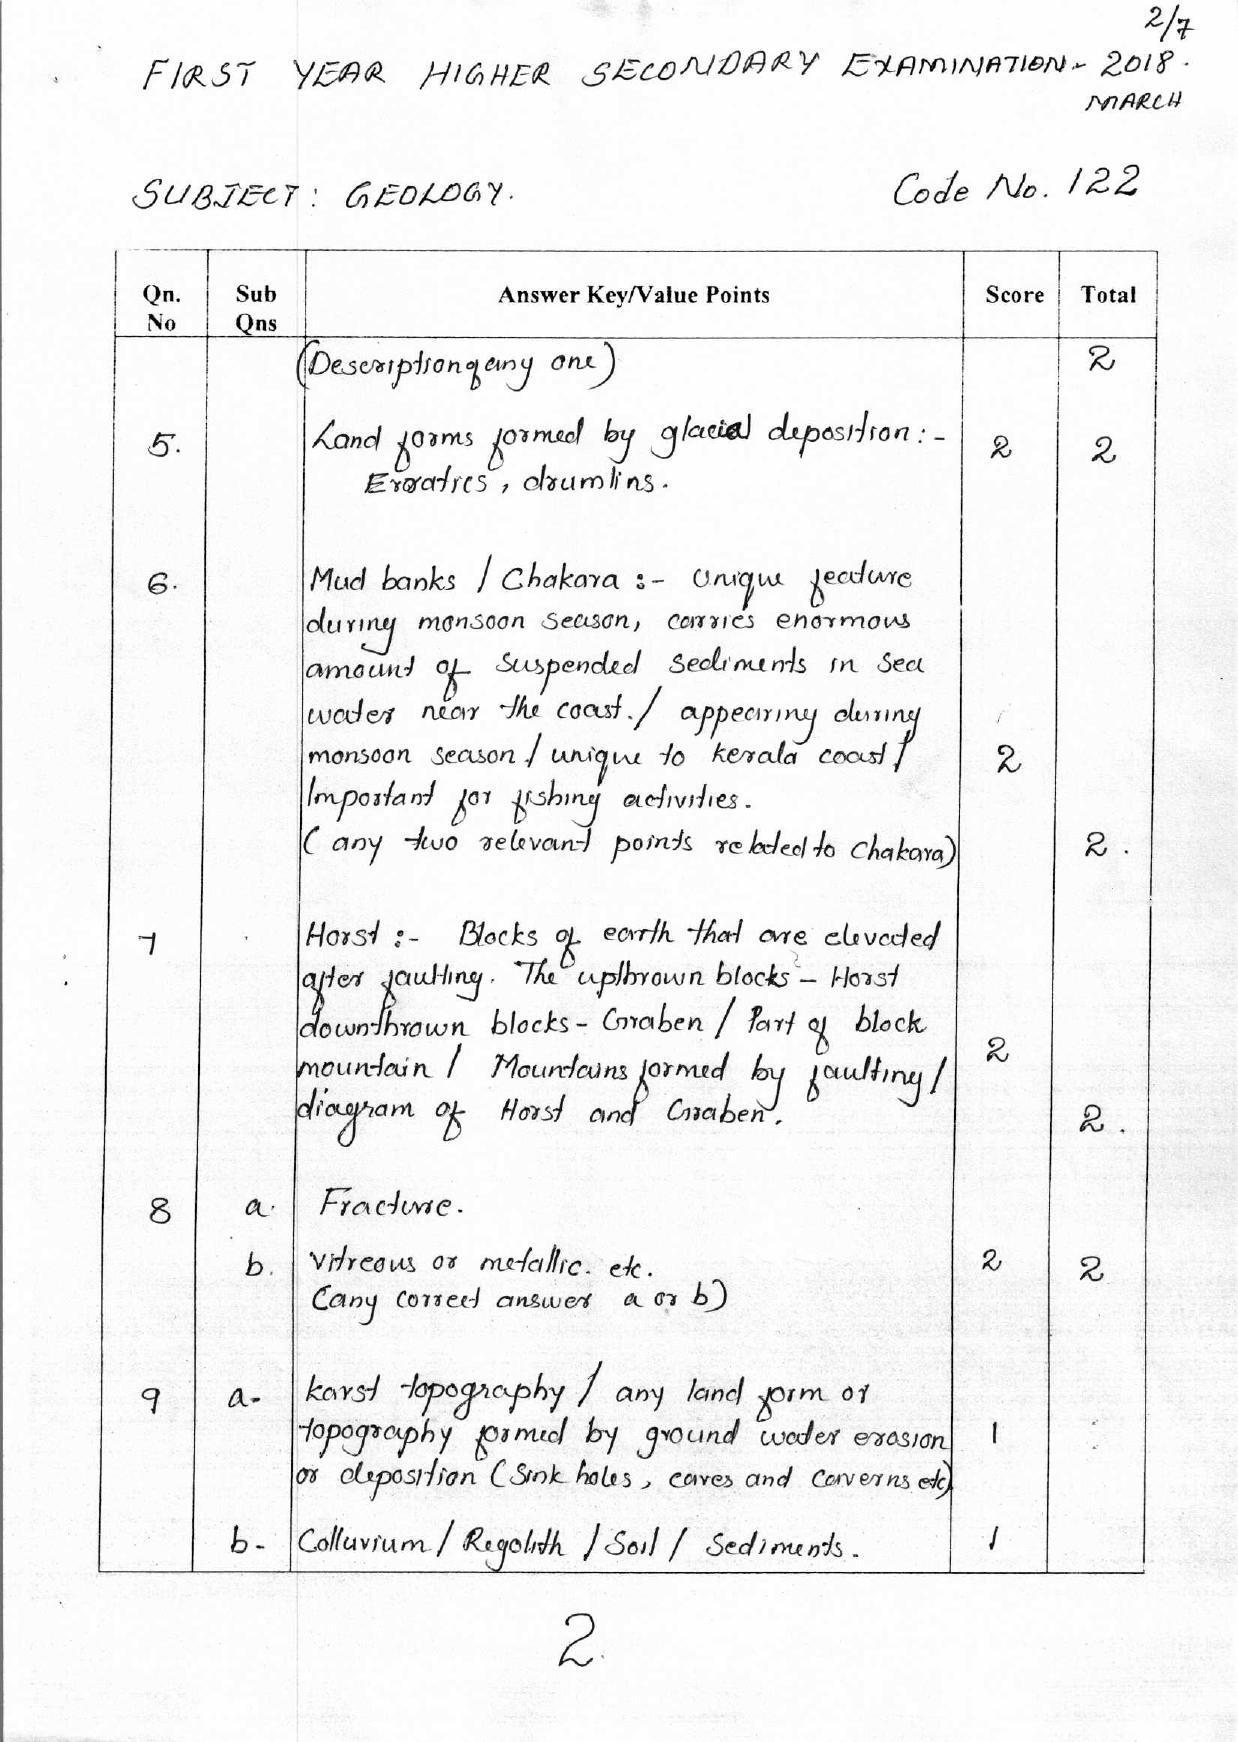 2/7
FIRST YEAR HIGHER SECONDARY EXAMINATION - 2018.
MARCH
SUBJECT: GEOLOGY. Code No. 122
Qn. No Sub Qns Answer Key/Value Points Score Total
(Description of any one) 2
5. Land forms formed by glacial deposition :- 2 2
Erratics, drumlins.
6. Mud banks / Chakara :- Unique feature
during monsoon season, carries enormous
amount of suspended sediments in sea
water near the coast. / appearing during
monsoon season / unique to kerala coast / 2
Important for fishing activities.
(any two relevant points related to Chakara) 2.
7 Horst :- Blocks of earth that are elevated
after faulting. The upthrown blocks - Horst
downthrown blocks - Graben / Part of block
mountain / Mountains formed by faulting / 2
diagram of Horst and Graben. 2.
8 a. Fracture.
b. Vitreous or metallic. etc. 2 2
(any correct answer a or b)
9 a- karst topography / any land form or
topography formed by ground water erosion 1
or deposition (Sink holes, caves and caverns etc)
b- Colluvium / Regolith / Soil / Sediments. 1
2.